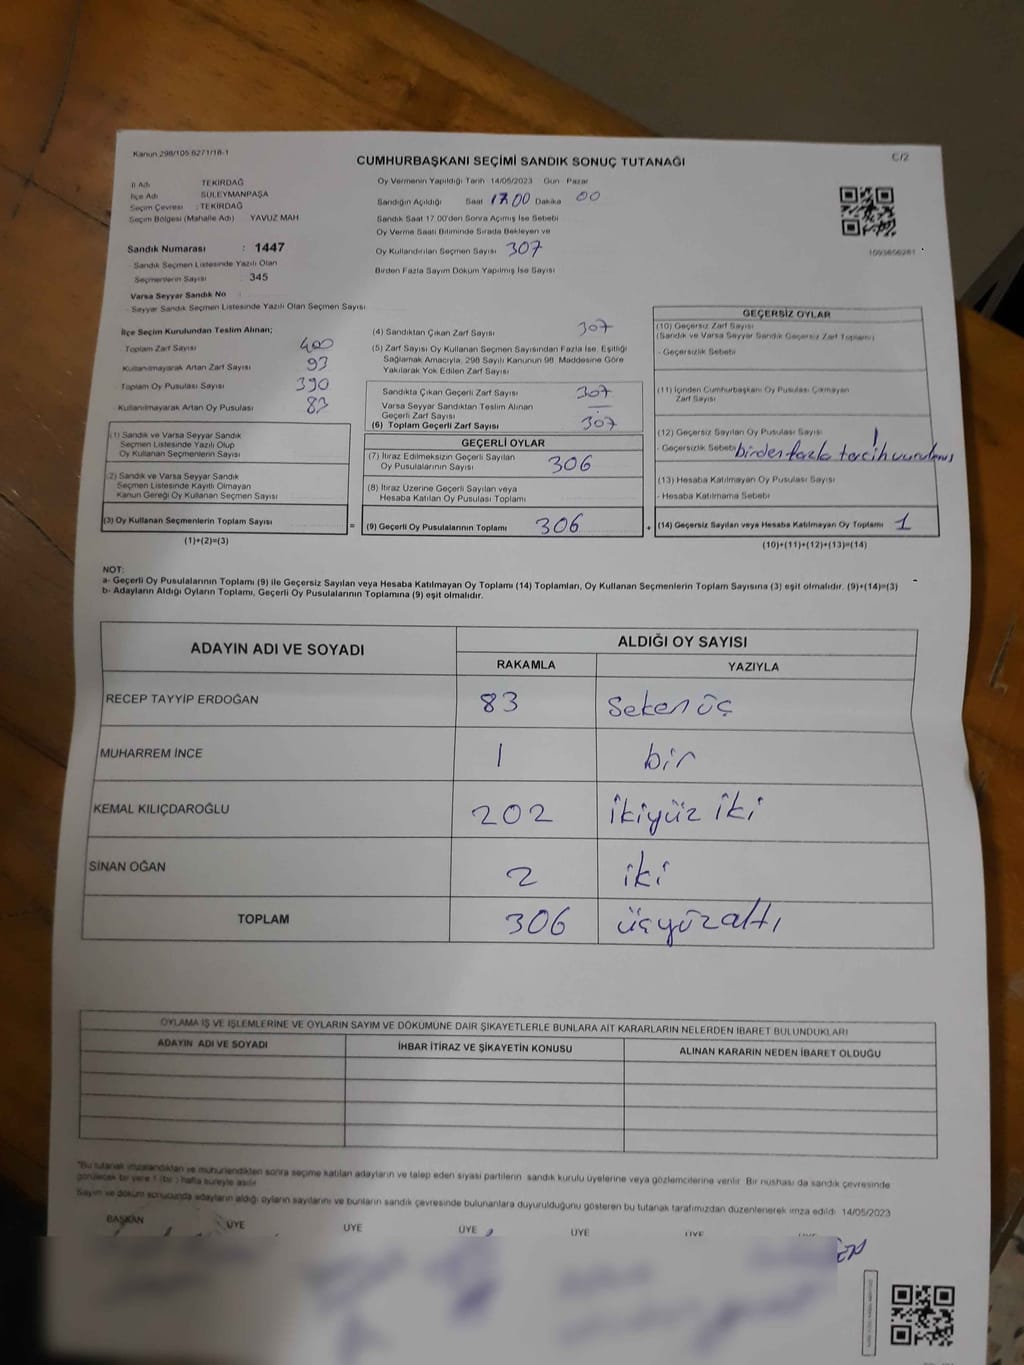 Kanun 298/105 6271/18-1
C/2
CUMHURBAŞKANI SEÇİMİ SANDIK SONUÇ TUTANAĞI
İl Adı TEKİRDAĞ
İlçe Adı SÜLEYMANPAŞA
Seçim Çevresi : TEKİRDAĞ
Seçim Bölgesi (Mahalle Adı) YAVUZ MAH
Sandık Numarası : 1447
Sandık Seçmen Listesinde Yazılı Olan
Seçmenlerin Sayısı 345
Varsa Seyyar Sandık No
Seyyar Sandık Seçmen Listesinde Yazılı Olan Seçmen Sayısı
Oy Vermenin Yapıldığı Tarih 14/05/2023 Gün Pazar
Sandığın Açıldığı Saat 17.00 Dakika 00
Sandık Saat 17.00'den Sonra Açmış İse Sebebi
Oy Verme Saati Bitiminde Sırada Bekleyen ve
Oy Kullandırılan Seçmen Sayısı 307
Birden Fazla Sayım Döküm Yapılmış İse Sayısı
İlçe Seçim Kurulundan Teslim Alınan;
Toplam Zarf Sayısı 400
Kullanılmayarak Artan Zarf Sayısı 93
Toplam Oy Pusulası Sayısı 390
Kullanılmayarak Artan Oy Pusulası 83
(1) Sandık ve Varsa Seyyar Sandık
Seçmen Listesinde Yazılı Olup
Oy Kullanan Seçmenlerin Sayısı
(2) Sandık ve Varsa Seyyar Sandık
Seçmen Listesinde Kayıtlı Olmayan
Kanun Gereği Oy Kullanan Seçmen Sayısı
(3) Oy Kullanan Seçmenlerin Toplam Sayısı
(1)+(2)=(3)
(4) Sandıktan Çıkan Zarf Sayısı 307
(5) Zarf Sayısı Oy Kullanan Seçmen Sayısından Fazla İse, Eşitliği
Sağlamak Amacıyla, 298 Sayılı Kanunun 98. Maddesine Göre
Yakılarak Yok Edilen Zarf Sayısı
Sandıkta Çıkan Geçerli Zarf Sayısı 307
Varsa Seyyar Sandıktan Teslim Alınan
Geçerli Zarf Sayısı
(6) Toplam Geçerli Zarf Sayısı 307
GEÇERLİ OYLAR
(7) İtiraz Edilmeksizin Geçerli Sayılan
Oy Pusulalarının Sayısı 306
(8) İtiraz Üzerine Geçerli Sayılan veya
Hesaba Katılan Oy Pusulası Toplamı
= (9) Geçerli Oy Pusulalarının Toplamı 306
GEÇERSİZ OYLAR
(10) Geçersiz Zarf Sayısı
(Sandık ve Varsa Seyyar Sandık Geçersiz Zarf Toplamı)
- Geçersizlik Sebebi
(11) İçinden Cumhurbaşkanı Oy Pusulası Çıkmayan
Zarf Sayısı
(12) Geçersiz Sayılan Oy Pusulası Sayısı 1
- Geçersizlik Sebebi birden fazla tercih vurulmuş
(13) Hesaba Katılmayan Oy Pusulası Sayısı
- Hesaba Katılmama Sebebi
+ (14) Geçersiz Sayılan veya Hesaba Katılmayan Oy Toplamı 1
(10)+(11)+(12)+(13)=(14)
NOT:
a- Geçerli Oy Pusulalarının Toplamı (9) ile Geçersiz Sayılan veya Hesaba Katılmayan Oy Toplamı (14) Toplamları, Oy Kullanan Seçmenlerin Toplam Sayısına (3) eşit olmalıdır. (9)+(14)=(3)
b- Adayların Aldığı Oyların Toplamı, Geçerli Oy Pusulalarının Toplamına (9) eşit olmalıdır.
ADAYIN ADI VE SOYADI ALDIĞI OY SAYISI
RAKAMLA YAZIYLA
RECEP TAYYİP ERDOĞAN 83 Seksen üç
MUHARREM İNCE 1 bir
KEMAL KILIÇDAROĞLU 202 ikiyüz iki
SİNAN OĞAN 2 iki
TOPLAM 306 üçyüzaltı
OYLAMA İŞ VE İŞLEMLERİNE VE OYLARIN SAYIM VE DÖKÜMÜNE DAİR ŞİKAYETLERLE BUNLARA AİT KARARLARIN NELERDEN İBARET BULUNDUKLARI
ADAYIN ADI VE SOYADI İHBAR İTİRAZ VE ŞİKAYETİN KONUSU ALINAN KARARIN NEDEN İBARET OLDUĞU
"Bu tutanak imzalandıktan ve mühürlendikten sonra seçime katılan adayların ve talep eden siyasi partilerin sandık kurulu üyelerine veya gözlemcilerine verilir. Bir nüshası da sandık çevresinde
görülecek bir yere 1 (bir ) hafta süreyle asılır
Sayım ve döküm sonucunda adayların aldığı oyların sayılarını ve bunların sandık çevresinde bulunanlara duyurulduğunu gösteren bu tutanak tarafımızdan düzenlenerek imza edildi 14/05/2023
BAŞKAN ÜYE ÜYE ÜYE ÜYE ÜYE